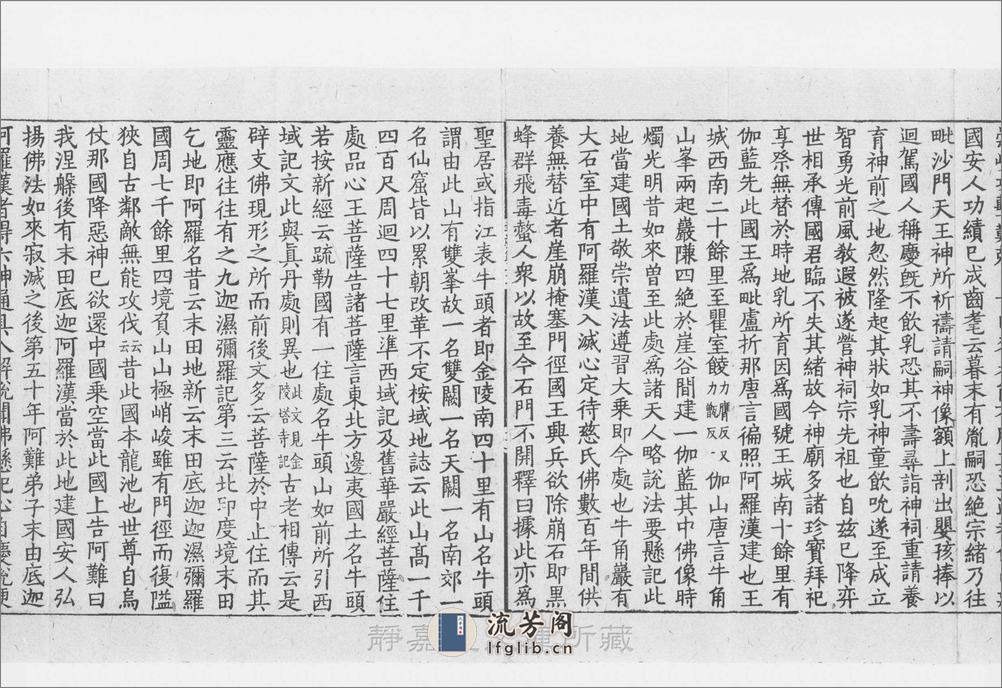 國安人功績已成齒耄云暮末有胤嗣恐絶宗緒乃往
毗沙門天王神所祈禱請嗣神像額上剖出嬰孩捧以
迴駕國人稱慶旣不飲乳恐其不壽尋詣神祠重請養
育神前之地忽然隆起其狀如乳神童飲吮遂至成立
智勇光前風教遐被遂營神祠宗先祖也自兹已降弈
世相承傳國君臨不失其緒故今神廟多諸珍寶拜祀
享祭無替於時地乳所育因爲國號王城南十餘里有
伽藍先此國王爲毗盧折那唐言徧照阿羅漢建也王
城西南二十餘里至瞿室餕力膺反又力觀反伽山唐言牛角
山峯兩起巖㟻四絶於崖谷間建一伽藍其中佛像時
燭光明昔如來曽至此處爲諸天人略說法要懸記此
地當建國土敬崇遺法遵習大乗即今處也牛角巖有
大石室中有阿羅漢入滅心定待慈氏佛數百年間供
養無替近者崖崩掩塞門徑國王興兵欲除崩石即黒
蜂群飛毒螫人衆以故至今石門不開釋曰據此亦爲
聖居或指江表牛頭者即金陵南四十里有山名牛頭
謂由此山有雙峯故一名雙闕一名天闕一名南郊一
名仙窟皆以累朝改革不定桉域地誌云此山髙一千
四百尺周迴四十七里準西域記及舊華嚴經菩薩住
處品心王菩薩告諸菩薩言東北方邊夷國土名牛頭
若按新經云疏勒國有一住處名牛頭山如前所引西
域記文此與真丹處則異也此文見金陵塔寺記古老相傳云是
辟支佛現形之所而前後文多云菩薩於中止住而其
靈應往往有之九迦濕彌羅記第三云北印度境末田
乞地即阿羅名昔云末田地新云末田底迦迦濕彌羅
國周七千餘里四境負山山極峭峻雖有門徑而復隘
狹自古鄰敵無能攻伐云云昔此國本龍池也世尊自烏
仗那國降惡神已欲還中國乗空當此國上告阿難曰
我涅槃後有末田底迦阿羅漢當於此地建國安人弘
揚佛法如來寂滅之後第五十年阿難弟子末由底迦
阿羅漢者得六神通具八解脫聞佛懸記心自慶悅便
靜嘉 所藏
流芳阁
lfglib.cn